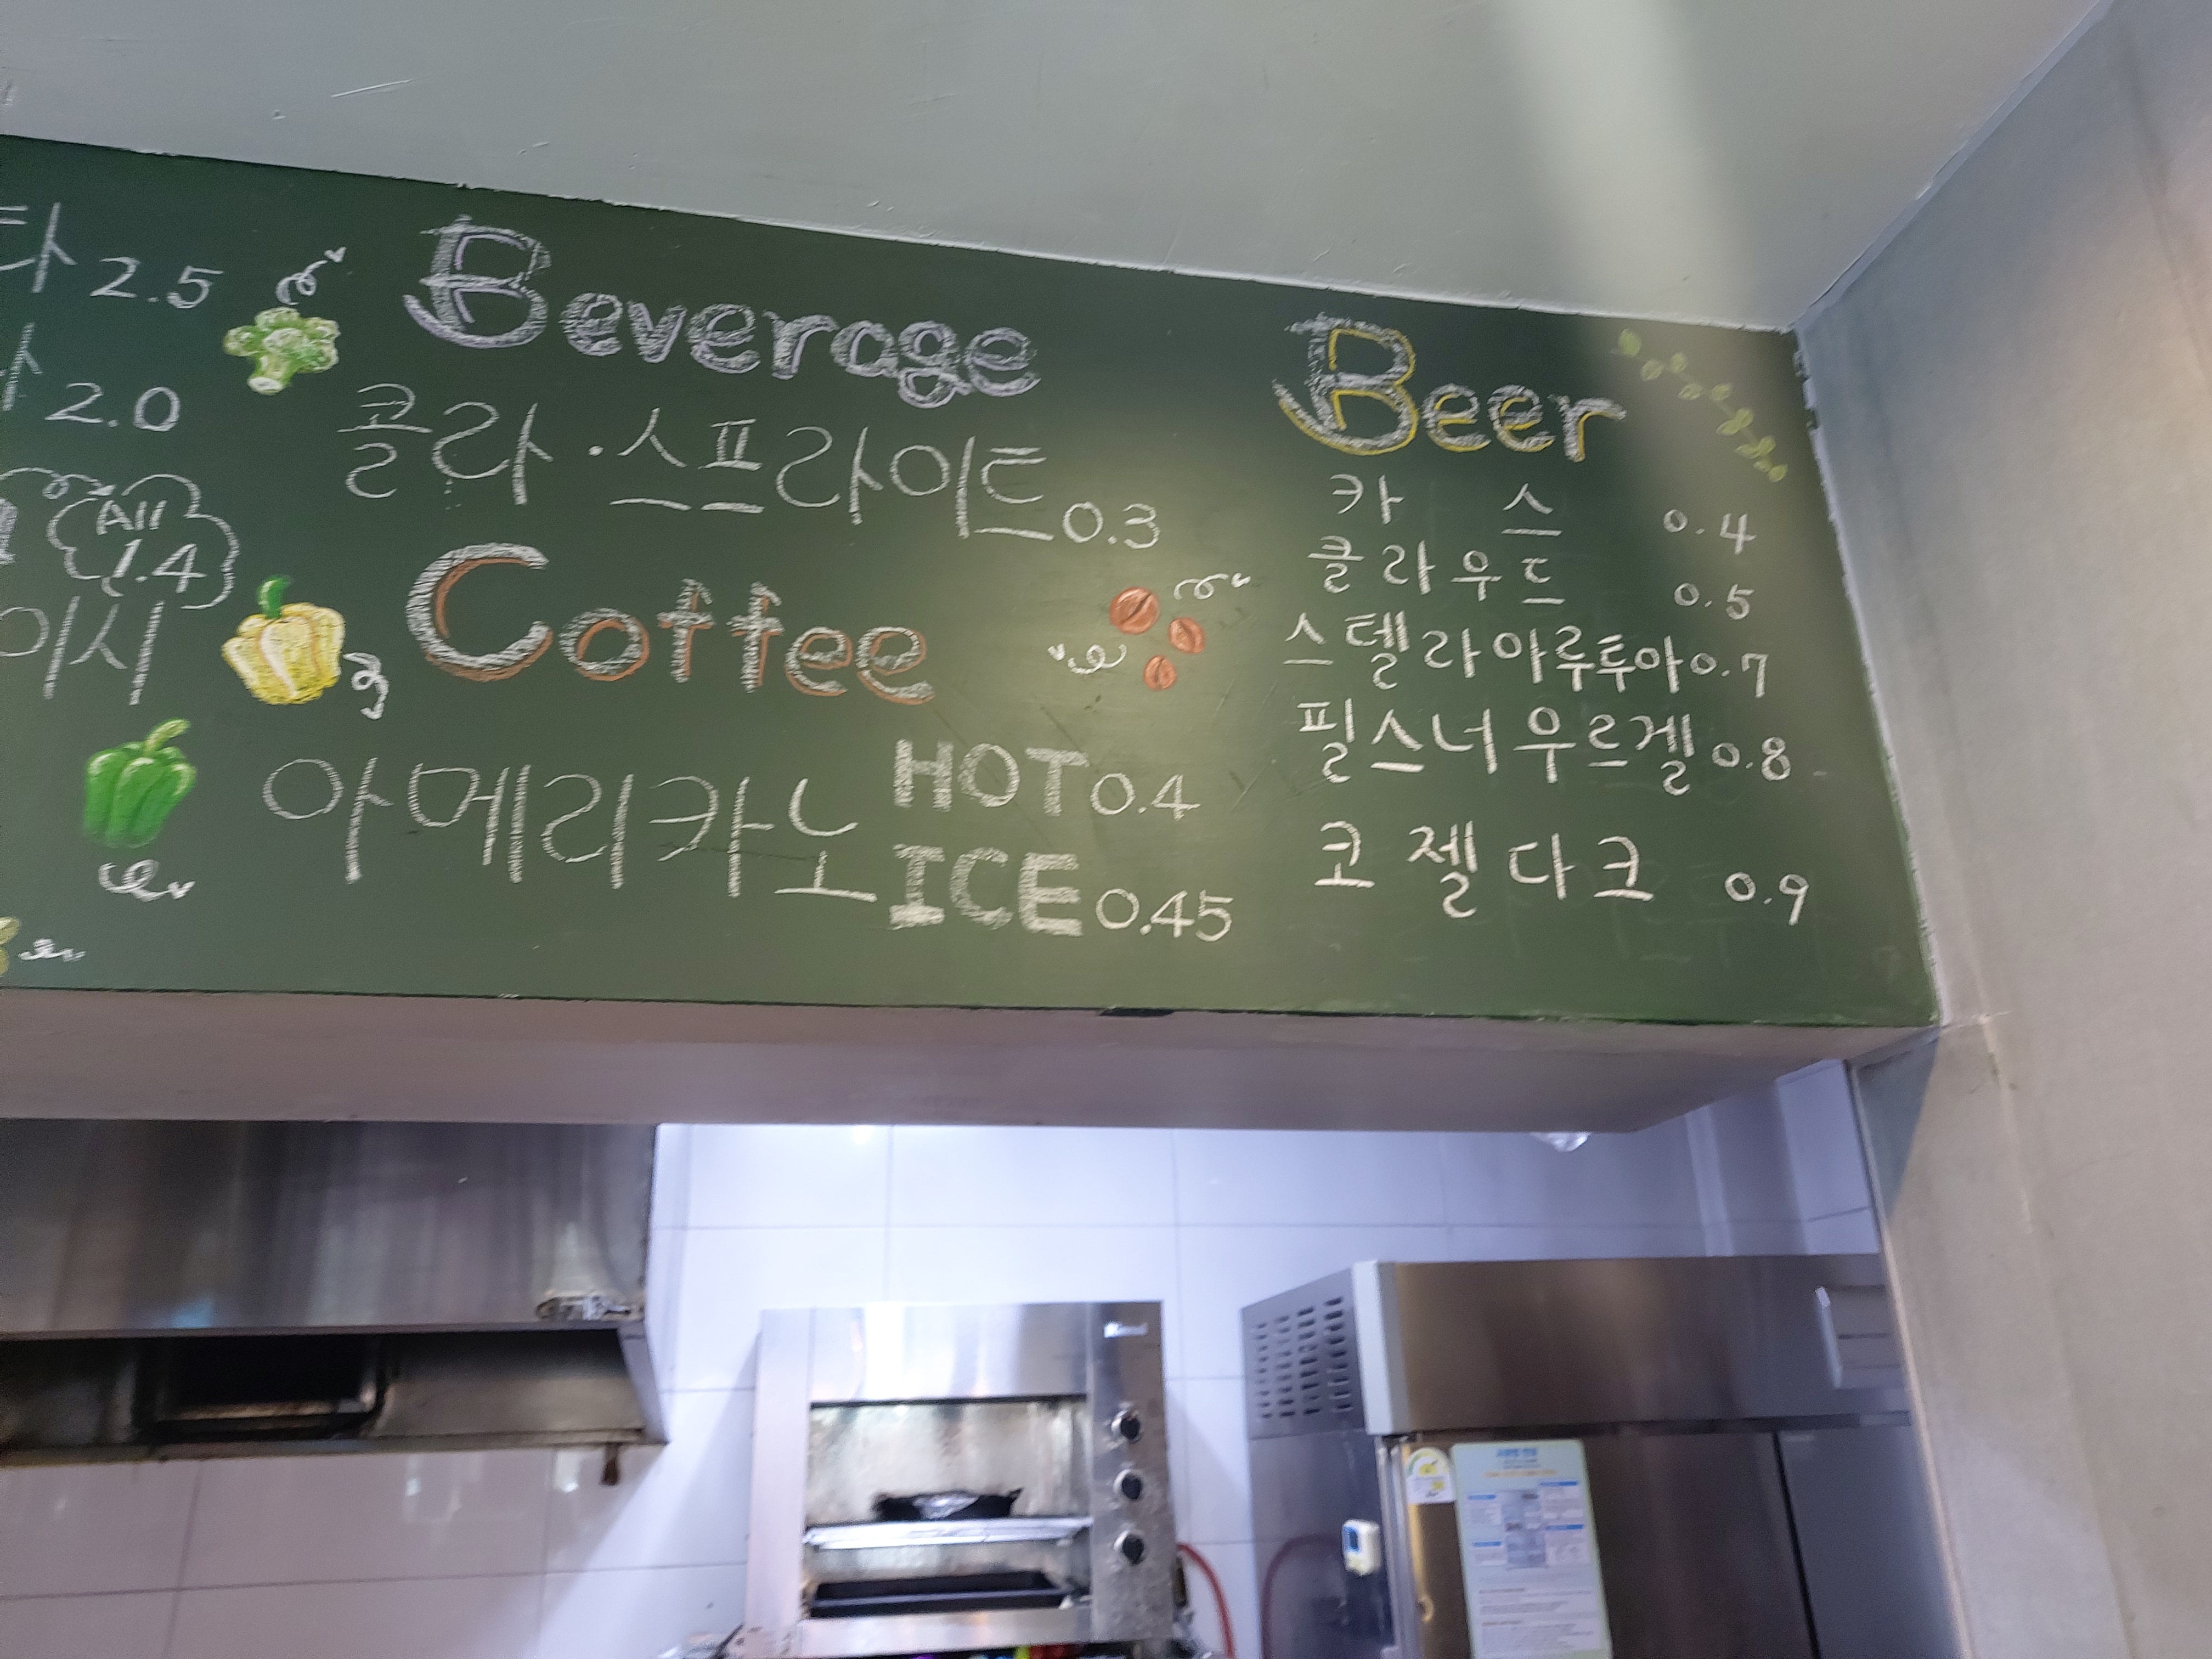 2.5
2.0
All
1.4
이시
Beverage
콜라·스프라이트 0.3
Coffee
아메리카노 HOT 0.4
ICE 0.45
Beer
카 스 0.4
클라우드 0.5
스텔라아루투아 0.7
필스너우르켈 0.8
코젤다크 0.9